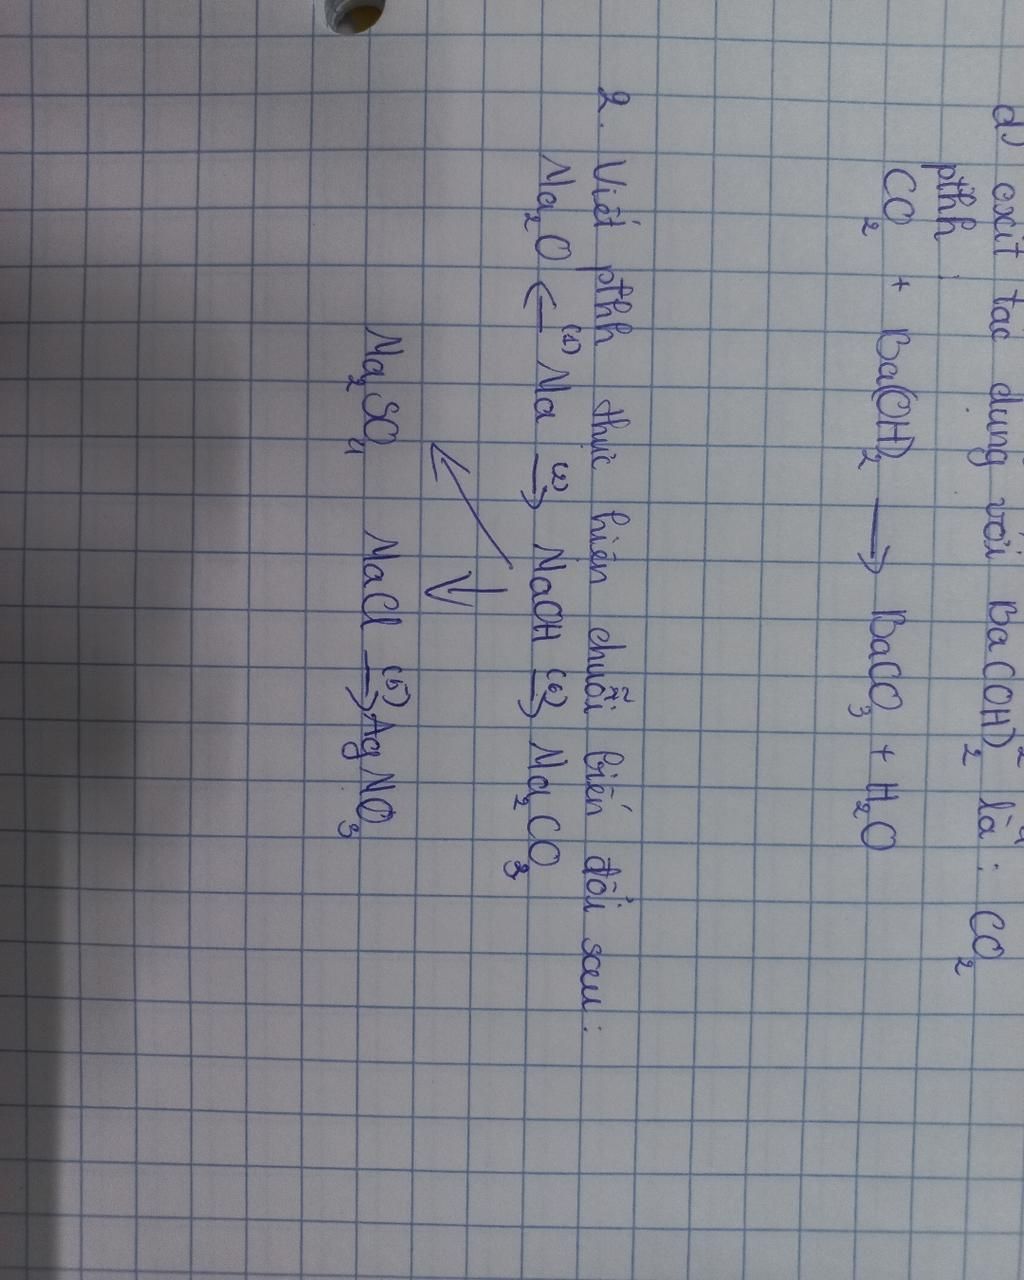 d) oxit tác dụng với Ba(OH)₂ là: CO₂
pthh:
CO₂ + Ba(OH)₂ → BaCO₃ + H₂O
2. Viết pthh thực hiện chuỗi biến đổi sau:
Na₂O ←(1) Na →(2) NaOH →(6) Na₂CO₃
↙ ↓
Na₂SO₄ NaCl →(5) AgNO₃